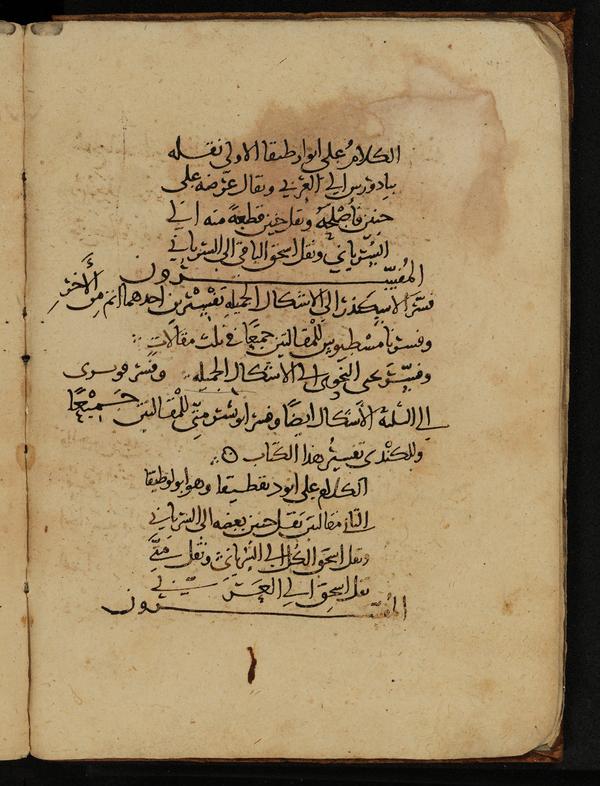 الكلام على انولوطيقا الاولى نقله
ثيادورس الى العربي ويقال عرضه على
حنين فأصلحه ونقل حنين قطعة منه الى
السرياني ونقل اسحق الباقي الى السرياني
المفسرون
فسر الاسكندر الى الاشكال الجملية تفسيرين احدهما اتم من الأخر
وفسر ثامسطيوس للمقالتين جميعا في ثلث مقالات
وفسر يحيى النحوى الى الاشكال الجملية وفسر قويرى
الى الثلثة الأشكال ايضا وفسر ابو بشر متى للمقالتين جميعا
وللكندى تفسير هذا الكتاب
الكلام على ابوديقطيقا وهو انولوطيقا
الثاني مقالتين نقل حنين بعضه الى السرياني
ونقل اسحق الكل الى السرياني ونقل متى
نقل اسحق الى العربي
المفسرون